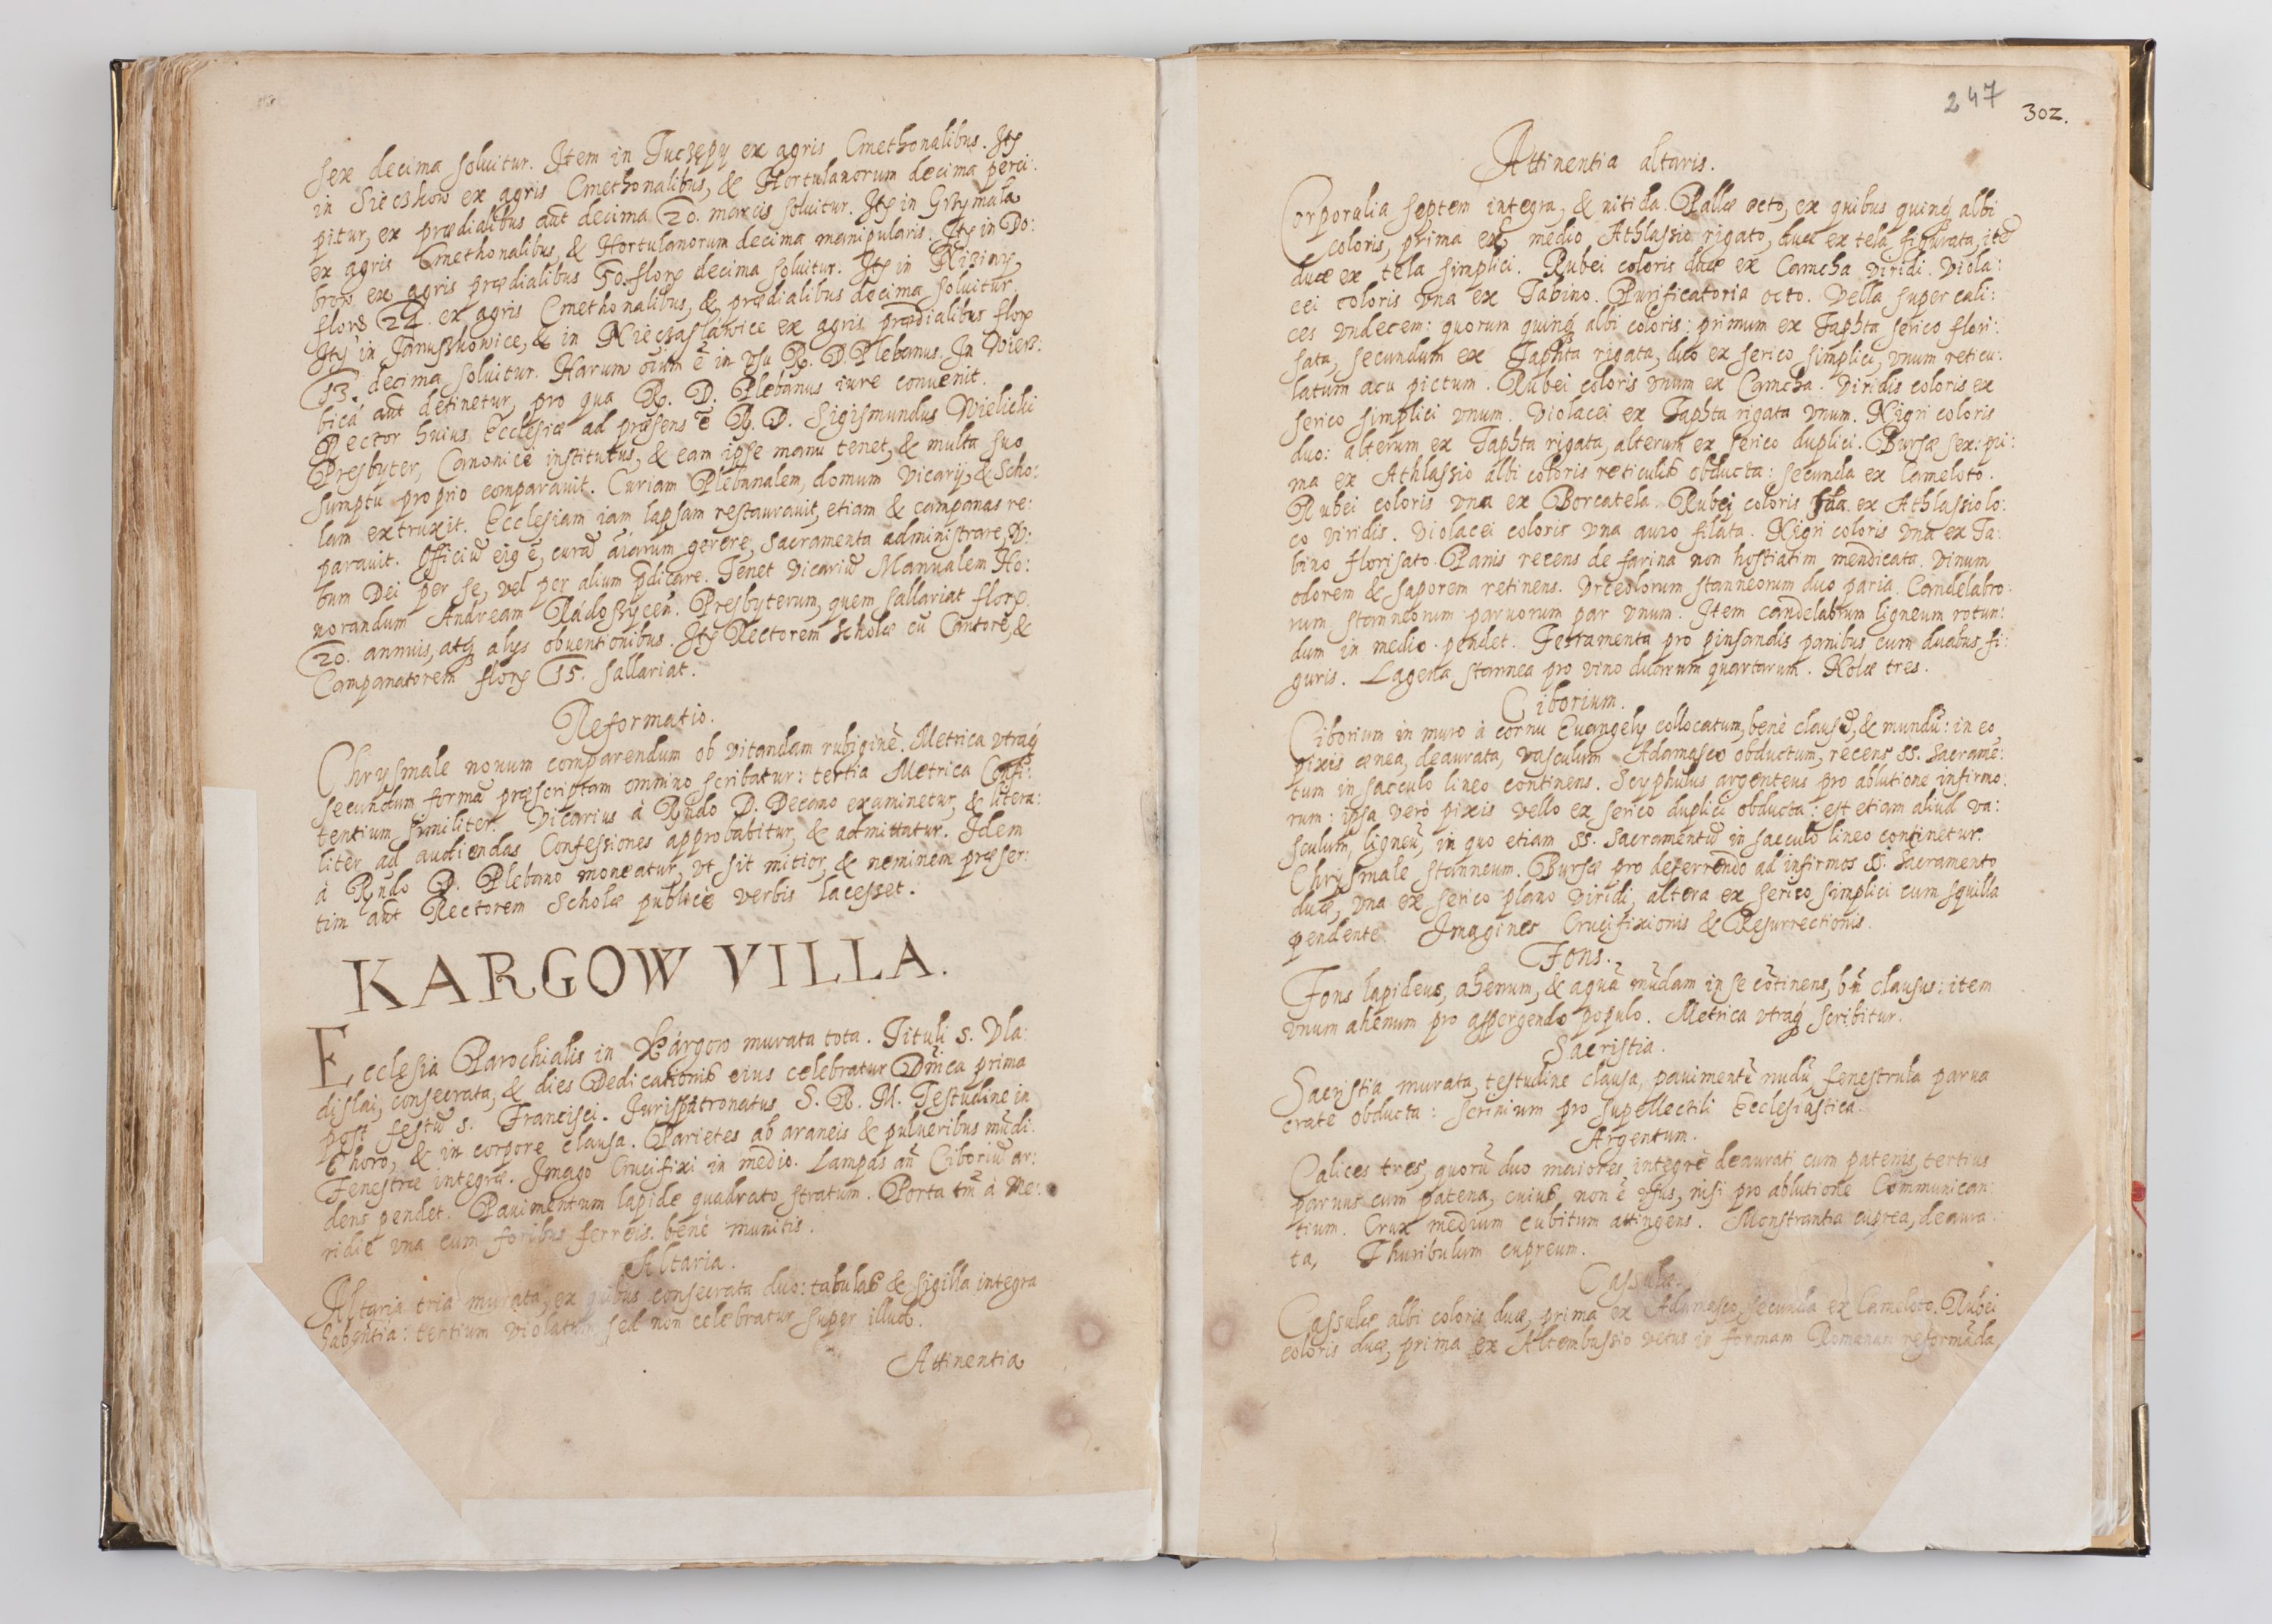 sex decima soluitur. Item in Tuczępy ex agris Cmethonalibus. Itꝫ
in Sieczkow ex agris Cmethonalibus, & Hortulanorum decima perci:
pitur, ex prædialibus aūt decima 20. marcis soluitur. Itꝫ in Grzymala
ex agris Cmethonalibus, & Hortulanorum decima manipularis. Itꝫ in Do:
brow ex agris prædialibus 50. florꝫ decima soluitur. Itꝫ in Niziny
ex agris Cmethonalibus, & prædialibus decima soluitur.
Itꝫ in Januszkowice, & in Nieczasławice ex agris prædialibus florꝫ
13. decima soluitur. Harum oīum ē in vsu R. D. Plebanus. In Wierz:
bica aūt detinetur, pro qua R. D. Plebanus iure conuenit.
Rector huius Ecclesiæ ad præsens ē R. D. Sigismundus Wielicki
Presbyter, Canonicè institutus, & eam ipse manu tenet, & multa suo
sumptu proprio comparauit. Curiam Plebanalem, domum Vicarij, & Scho:
lam extruxit. Ecclesiam iam lapsam restaurauit, etiam & campanas re:
parauit. Officiū eig ē, curā aīarum gerere, Sacramenta administrare, V:
bum Dei per se, vel per alium p̄dicare. Tenet Vicariū Manualem Ho:
norandum Andream Rádoszycen. Presbyterum, quem sallariat florꝫ
20. annuis, atq́ꝫ alijs obuentionibus. Itꝫ Rectorem scholæ cū Cantore, &
Campanatorem florꝫ 15. sallariat.
Reformatio.
Chrysmale nouum comparendum ob vitandam rubiginē. Metrica vtraq́
secundum formā præscriptam omnino scribatur: tertia Metrica Confi:
tentium similiter. Vicarius à Rn̄do D. Decano examinetur, & litera:
liter ad audiendas Confessiones approbabitur, & admittatur. Idem
à Rndo D. Plebano moneatur, vt sit mitior, & neminem præser:
tim aūt Rectorem Scholæ publicè verbis lacesset.
KARGOW VILLA.
Ecclesia Parochialis in Kárgow murata tota. Tituli S. Vla:
dislai, consecrata, & dies Dedicationis eius celebratur Dn̄ica prima
post festū S. Francisci. Jurispatronatus S. R. M. Testudine in
Choro, & in corpore clausa. Parietes ab araneis & pulueribus mūdi.
Fenestræ integræ. Imago Crucifixi in medio. Lampas añ Ciboriū ar:
dens pendet. Pauimentum lapide quadrato stratum. Porta tm̄ à Me:
ridie vna cum foribus ferreis bene munitis.
Altaria.
Altaria tria murata, ex quibus consecrata duo: tabulas & sigilla integra
habentia: tertium violatum, sed non celebratur super illud.
Attinentia
247
302.
Attinentia altaris.
Corporalia septem integra, & nitida. Pallæ octo, ex quibus quinq́ albi
coloris, prima ex medio Athlassio rigato, duæ ex tela figurata, itē
duæ ex tela simplici. Rubei coloris duæ ex Camcha viridi. Viola:
cei coloris vna ex Tabino. Purificatoria octo. Vella super cali:
ces vndecem: quorum quinq́ albi coloris: primum ex Taphta serico flori:
sata, secundum ex Taphta rigata, duo ex serico simplici, vnum reticu:
latum acu pictum. Rubei coloris vnum ex Camcha. Viridis coloris ex
serico simplici vnum. Violacei ex Taphta rigata vnum. Nigri coloris
duo: alterum ex Taphta rigata, alterum ex serico duplici. Bursæ sex: pri:
ma ex Athlassio albi coloris reticulis obducta: secunda ex Cameloto.
Rubei coloris vna ex Borcatela. Rubei coloris ex Athlassiolo:
co viridis. Violacei coloris vna auro filata. Nigri coloris vna ex Ta:
bino florisato. Panis recens de farina non hostiatim mendicata. Vinum
odorem & saporem retinens. Vrceolorum stanneorum duo paria. Candelabro:
rum stanneorum paruorum par vnum. Item candelabrum ligneum rotun:
dum in medio pendet. Ferramenta pro pinsandis panibus cum duabus fi:
guris. Lagena stannea pro vino duarum quartarum. Nolæ tres.
Ciborium.
Ciborium in muro à cornu Euangelij collocatum, benè clausū, & mundū: in eo
pixis ænea, deaurata, vasculum Adamasco obductum, recens SS. Sacramē:
tum in sacculo lineo continens. Scyphulus argenteus pro ablutione infirmo:
rum: ipsa verò pixis vello ex serico duplici obducta: est etiam aliud va:
sculum, ligneū, in quo etiam SS. Sacramentū in sacculo lineo continetur.
Chrysmale stanneum. Bursæ pro deferrendo ad infirmos SS. Sacramento
duæ, vna ex serico plano viridi, altera ex serico simplici cum squilla
pendente. Imagines Crucifixionis & Resurrectionis.
Fons.
Fons lapideus, ahenum, & aquā mūdam in se cōtinens, bñ clausus: item
vnum ahenum pro aspergendo populo. Metrica vtraq́ scribitur.
Sacristia.
Sacristia murata, testudine clausa, pauimentū nudū, fenestrula parua
crate obducta: scrinium pro supellectili Ecclesiastica.
Argentum.
Calices tres, quorū duo maiores integrè deaurati cum patenis, tertius
paruus cum patena, cuius non ē vsus, nisi pro ablutione Communican:
tium. Crux medium cubitum attingens. Monstrantia cuprea, deaura:
ta, Thuribulum cupreum.
Casulæ.
Cassulæ albi coloris duæ, prima ex Adamasco, secunda ex Cameloto. Rubei
coloris duæ, prima ex Altembassio vetus in formam Romanam reformāda,